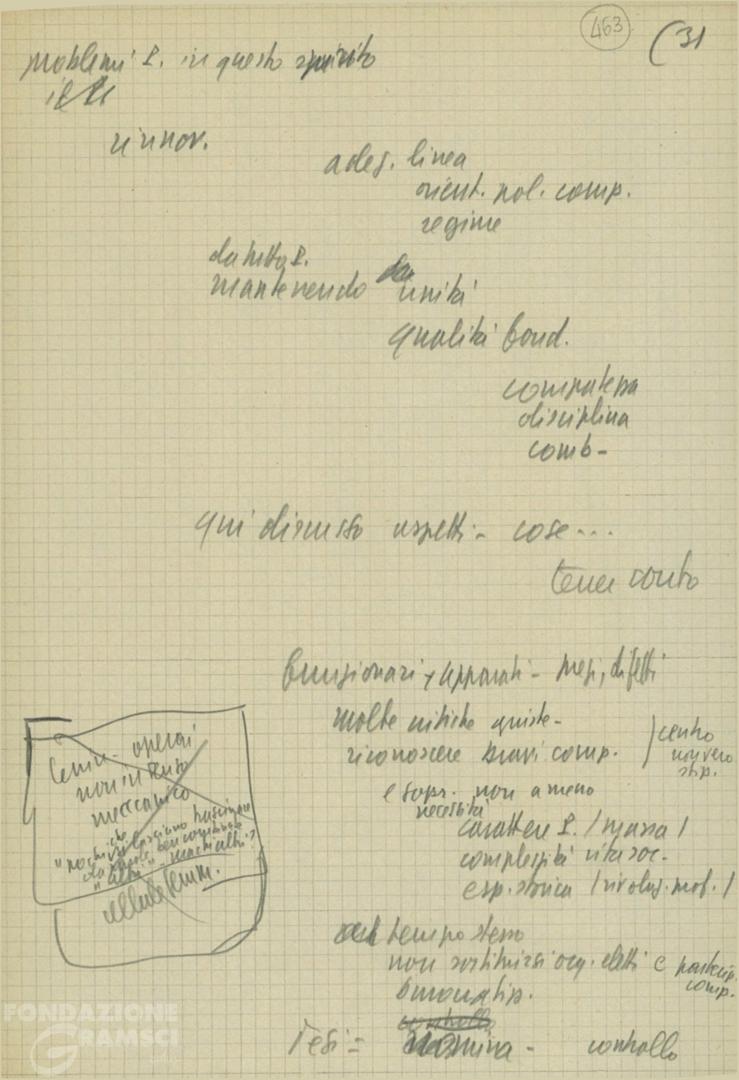 463
(31
problemi P. in questo spirito
rinnov.
adeg. linea
orient. pol. comp.
regime
da tutto P.
mantenendo unità
qualità fond.
compattezza
disciplina
comb-
qui discusso aspetti - cose...
tener conto
funzionari e apparati - pregi, difetti
molte critiche giuste -
riconoscere bravi comp.
centro
non vero
stip.
e sopr. non a meno
necessità
carattere P. / massa /
complessità vita soc.
esp. storica / rivoluz. prof. /
nel tempo stesso
non sostituirsi org. eletti e partecip.
comp.
Tesi = nomina - controllo
Lenin - operai
non in senso
meccanico
"altri"
cellule femm.
FONDAZIONE
GRAMSCI